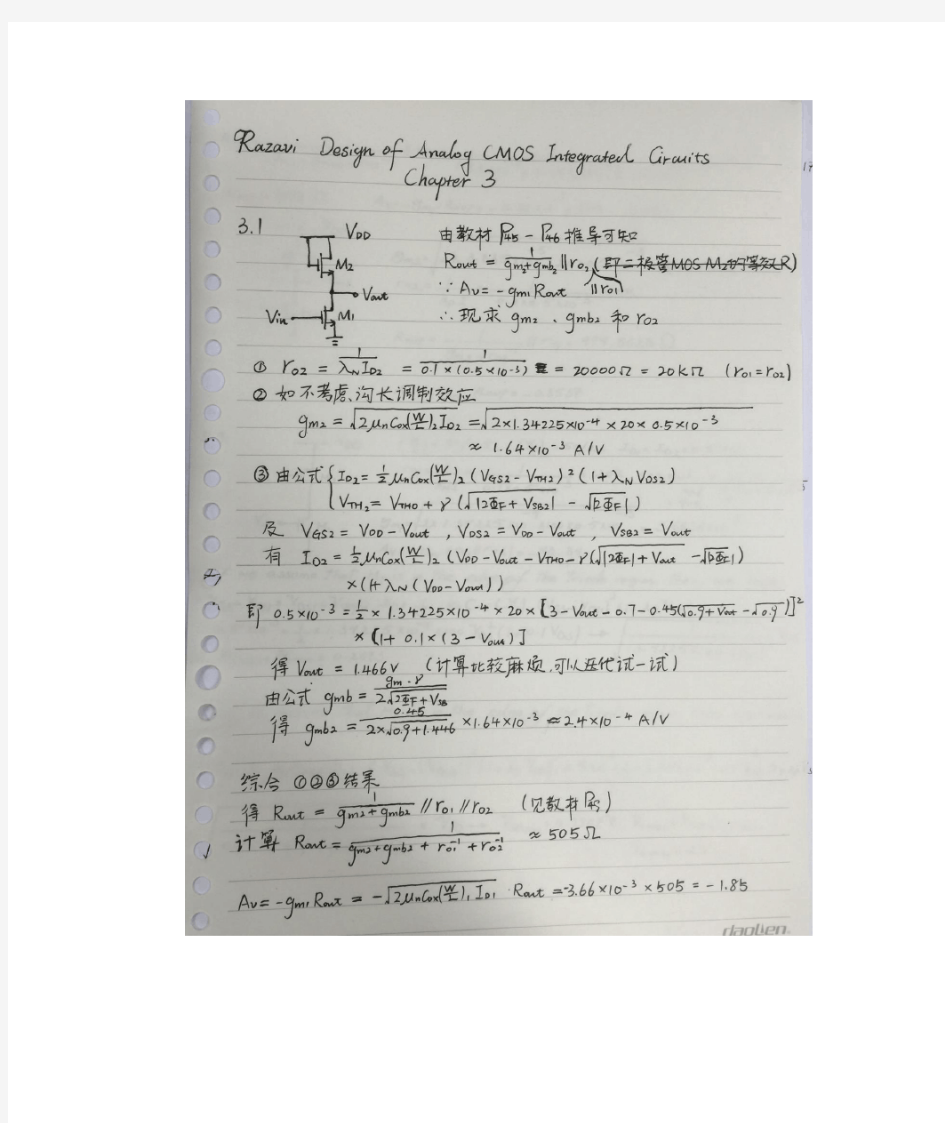 Razavi Design of Analog CMOS Integrated Circuits
Chapter 3
3.1
VDD
M2
Vout
Vin
M1
由教材 P45 - P46 推导可知
Rout = 1/(gm2+gmb2) ∥ ro2 (即二极管MOS M2的等效R)
∥ro1
∵ Av = -gm1 Rout
∴ 现求 gm2、gmb2 和 ro2
① ro2 = 1/(λN ID2) = 1/(0.1×(0.5×10⁻³)) = 20000Ω = 20kΩ (ro1=ro2)
② 如不考虑沟长调制效应
gm2 = √(2μnCox(W/L)2 ID2) = √(2×1.34225×10⁻⁴×20×0.5×10⁻³)
≈ 1.64×10⁻³ A/V
③ 由公式 { ID2 = ½ μnCox(W/L)2 (VGS2 - VTH2)² (1+λN VDS2)
VTH2 = VTH0 + γ (√|2ΦF + VSB2| - √|2ΦF|)
及 VGS2 = VDD - Vout , VDS2 = VDD - Vout , VSB2 = Vout
有 ID2 = ½ μnCox(W/L)2 (VDD - Vout - VTH0 - γ(√|2ΦF|+Vout - √|2ΦF|)
×(1+λN(VDD-Vout))
即 0.5×10⁻³ = ½ × 1.34225×10⁻⁴ × 20 × [3 - Vout - 0.7 - 0.45(√0.9+Vout - √0.9)]²
× [1+ 0.1×(3-Vout)]
得 Vout = 1.466V (计算比较麻烦,可以迭代试一试)
由公式 gmb = gm·γ/(2√(2ΦF+VSB))
得 gmb2 = 0.45/(2×√(0.9+1.446)) ×1.64×10⁻³ ≈ 2.4×10⁻⁴ A/V
综合 ①②③结果
得 Rout = 1/(gm2+gmb2) ∥ ro1 ∥ ro2 (见教材
计算 Rout = 1/(gm2+gmb2+ro1⁻¹+ro2⁻¹) ≈ 505Ω
Av = -gm1 Rout = -√(2μnCox(W/L)1 ID1) · Rout = -3.66×10⁻³×505 = -1.85